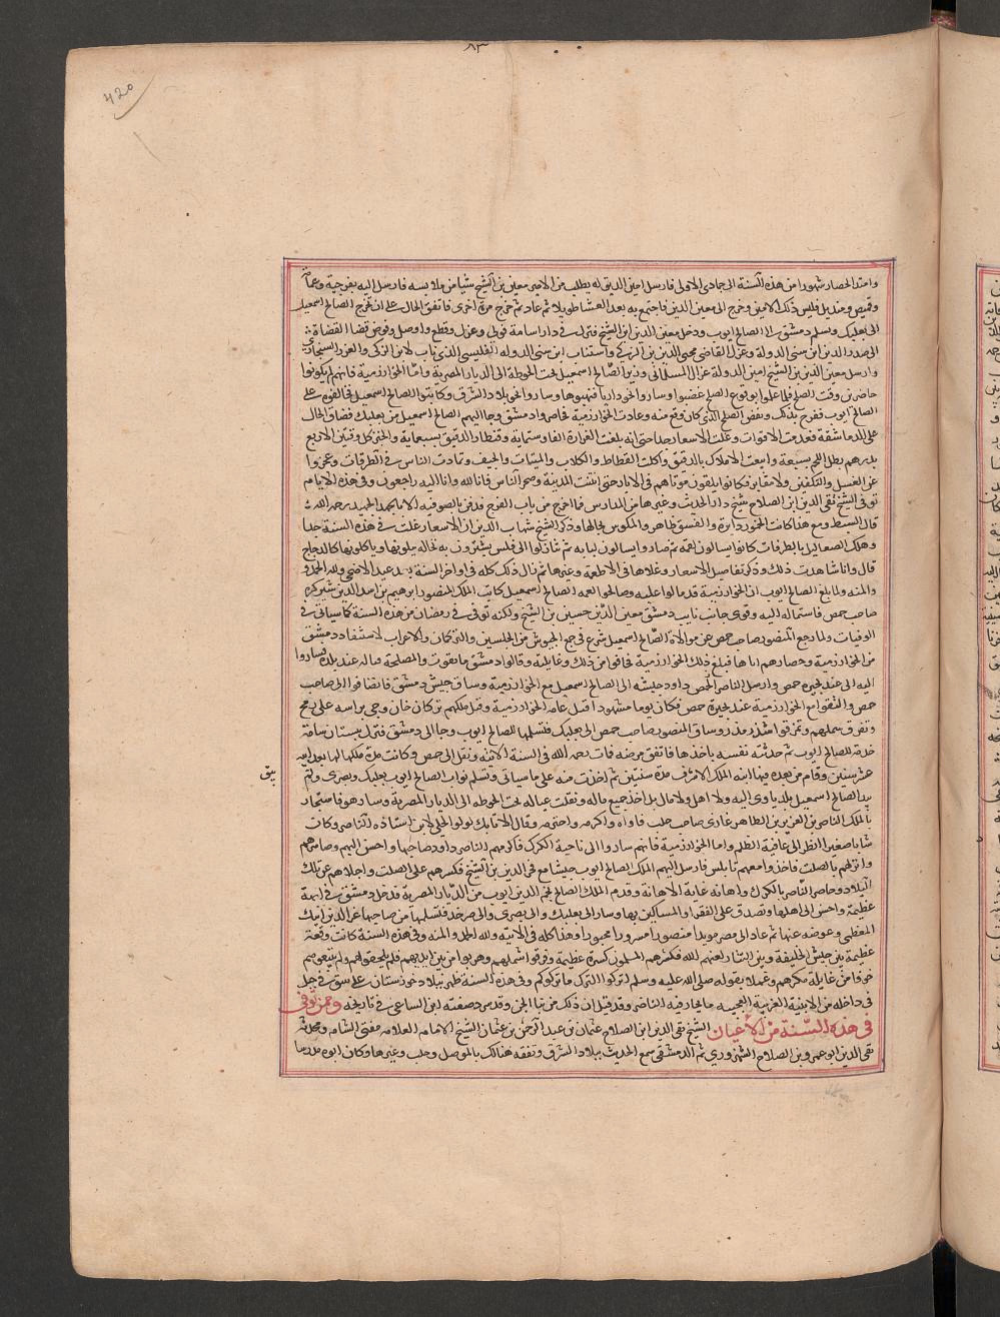 420
٨٣
وامتد الحصار شهورا من هذه السنة الى جمادى الاولى فارسل امين الدولة يطلب من الامير معين بن الشيخ شيا من ملابسه فارسل اليه بفرجية وعمامة
وقميص ومنديل فلبس ذلك الامين وخرج الى معين الدين فاجتمع به بعد العشا طويلا ثم عاد ثم خرج مرة اخرى فاتفق الحال على ان يخرج الصالح اسمعيل
الى بعلبك وتسلم دمشق الى الصالح ايوب ودخل معين الدين ابن الشيخ فنزل في دار اسامة فولى وعزل وقطع واوصل وفوض قضا القضاة
الى صدر الدين ابن سنى الدولة وعزل القاضي محيى الدين بن الزكى واستناب ابن سنى الدولة التفليسي الذي ناب لابن الزكى والعز السنجارى
وارسل معين الدين بن الشيخ امين الدولة غزال المسلمانى وزير الصالح اسمعيل تحت الحوطة الى الديار المصرية واما الخوارزمية فانهم لم يكونوا
حاضرين وقت الصلح فلما علموا بوقوع الصلح غضبوا وساروا نحو داريا فنهبوها وساروا نحو بلاد الشرق وكاتبوا الصالح اسمعيل فحالفوه على
الصالح ايوب ففرح بذلك ونقض الصلح الذي كان وقع منه وعادت الخوارزمية فحاصروا دمشق وجا اليهم الصالح اسمعيل من بعلبك فضاق الحال
على الدماشقة فعدمت الاقوات وغلت الاسعار جدا حتى انه بلغت الغرارة الفا وستماية وقنطار الدقيق بسبعماية والخبز كل وقتين الا ربع
بدرهم رطل اللحم بسبعة وابيعت الاملاك بالدقيق واكلت القطاط والكلاب والميتات والجيف وتمادت الناس في الطرقات وعجزوا
عن الغسل والتكفين والاقبار فكانوا يلقون موتاهم في الابار حتى انتنت المدينة وضجر الناس فانا لله وانا اليه راجعون وفى هذه الايام
توفى الشيخ تقي الدين ابن الصلاح شيخ دار الحديث وغيرها من المدارس فما اخرج من باب الفرج فدفن بالصوفيه الا بالجهد الجهيد رحمه الله
قال السبط ومع هذا كانت الخمور دايرة والفسق ظاهر والمكوس بحالها وذكر الشيخ شهاب الدين ان الاسعار غلت في هذه السنة جدا
وهلك الصعاليك بالطرقات كانوا يسالون لقمة ثم صاروا يسالون لبابه ثم تنازلوا الى فلس يشترون به نخالة يبلونها وياكلونها كالدجاج
قال وانا شاهدت ذلك وذكر تفاصيل الاسعار وغلاها فى الاطعمة وغيرها ثم زال ذلك كله فى اواخر السنة بعد عيد الاضحى ولله الحمد
والمنه ولما بلغ الصالح ايوب ان الخوارزمية قد مالوا عليه وصالحوا العمه الصالح اسمعيل كاتب الملك المنصور ابرهيم بن اسد الدين شيركوه
صاحب حمص فاستماله اليه وقوى جانب نايب دمشق معين الدين حسين بن الشيخ ولكنه توفى في رمضان من هذه السنة كما سياتى في
الوفيات ولما رجع المنصور صاحب حمص عن موالاة الصالح اسمعيل شرع في جمع الجيوش من الحلبيين والتركمان والاعراب لاستنقاذ دمشق
من الخوارزمية وحصارهم اياها فبلغ ذلك الخوارزمية فخافوا من ذلك وغايلته وقالوا دمشق ما تفوت والمصلحة قتاله عند بلده فساروا
اليه الى عند بحيرة حمص وارسل الناصر داود جيشه الى الصالح اسمعيل مع الخوارزمية وساق جيش دمشق فانضافوا الى صاحب
حمص والتقوا مع الخوارزمية عند بحيرة حمص فكان يوما مشهودا قتل عامة الخوارزمية وقتل ملكهم بركات خان وجى براسه على رمح
وتفرق شملهم وتمزقوا شذر مذر وساق المنصور صاحب حمص الى بعلبك فتسلمها للصالح ايوب وجا الى دمشق فنزل ببستان سامة
خدمة للصالح ايوب ثم حدثته نفسه باخذها فاتفق مرضه فمات رحمه الله فى السنة الاتية ونقل الى حمص وكانت مدة ملكه لها بعد ابيه
عشر سنين وقام من بعده فيها ابنه الملك الاشرف مدة سنتين ثم اخذت منه على ما سياتى وتسلم نواب الصالح ايوب بعلبك وبصرى ولم
يبق
بيد الصالح اسمعيل بلد ياوى اليه ولا اهل ولا مال بل اخذ جميع ماله ونقلت عياله تحت الحوطه الى الديار المصرية وسار هو فاستجار
بالملك الناصر بن العزيز بن الظاهر غازى صاحب حلب فاواه واكرمه واحترمه وقال الاتابك لولو الحلبي لابن استاذه الناصر وكان
شابا صغيرا انظر الى عاقبة الظلم واما الخوارزمية فانهم ساروا الى ناحية الكرك فاكرمهم الناصر داود صاحبها واحسن اليهم وصاهرهم
وانزلهم بالصلت فاخذوا معهم نابلس فارسل اليهم الملك الصالح ايوب جيشا مع فخر الدين بن الشيخ فكسرهم على الصلت واجلاهم عن تلك
البلاد وحاصر الناصر بالكرك واهانه غاية الاهانة وقدم الملك الصالح نجم الدين ايوب من الديار المصرية فدخل دمشق في ابهة
عظيمة واحسن الى اهلها وتصدق على الفقرا والمساكين بها وسار الى بعلبك والى بصرى والى صرخد فتسلمها من صاحبها عز الدين ايبك
المعظمى وعوضه عنها ثم عاد الى مصر مويدا منصورا مسرورا محبورا وهذا كله فى الاتية ولله الحمد والمنه وفى هذه السنة كانت وقعة
عظيمة بين جيش الخليفة وبين التتار لعنهم الله فكسرهم المسلمون كسرة عظيمة وفرقوا شملهم وهربوا من بين ايديهم فلم يلحقوهم ولم يتبعوهم
خوفا من غايلة مكرهم وعملا بقوله صلى الله عليه وسلم اتركوا الترك ما تركوكم وفى هذه السنة ظهر ببلاد خوزستان على شق جبل
فى داخله من الابنية الغريبة العجيبه ما يحار فيه الناظر وقد قيل ان ذلك من بنا الجن وقد من وصفته ابن الساعي في تاريخه وممن توفى
في هذه السنة من الاعيان الشيخ تقي الدين ابن الصلاح عثمان بن عبد الرحمن بن عثمان الشيخ الامام العلامه مفتى الشام ومحدثها
تقى الدين ابو عمرو بن الصلاح الشهرزوري ثم الدمشقى سمع الحديث ببلاد الشرق وتفقه هنالك بالموصل وحلب وغيرها وكان ابوه مدرسا